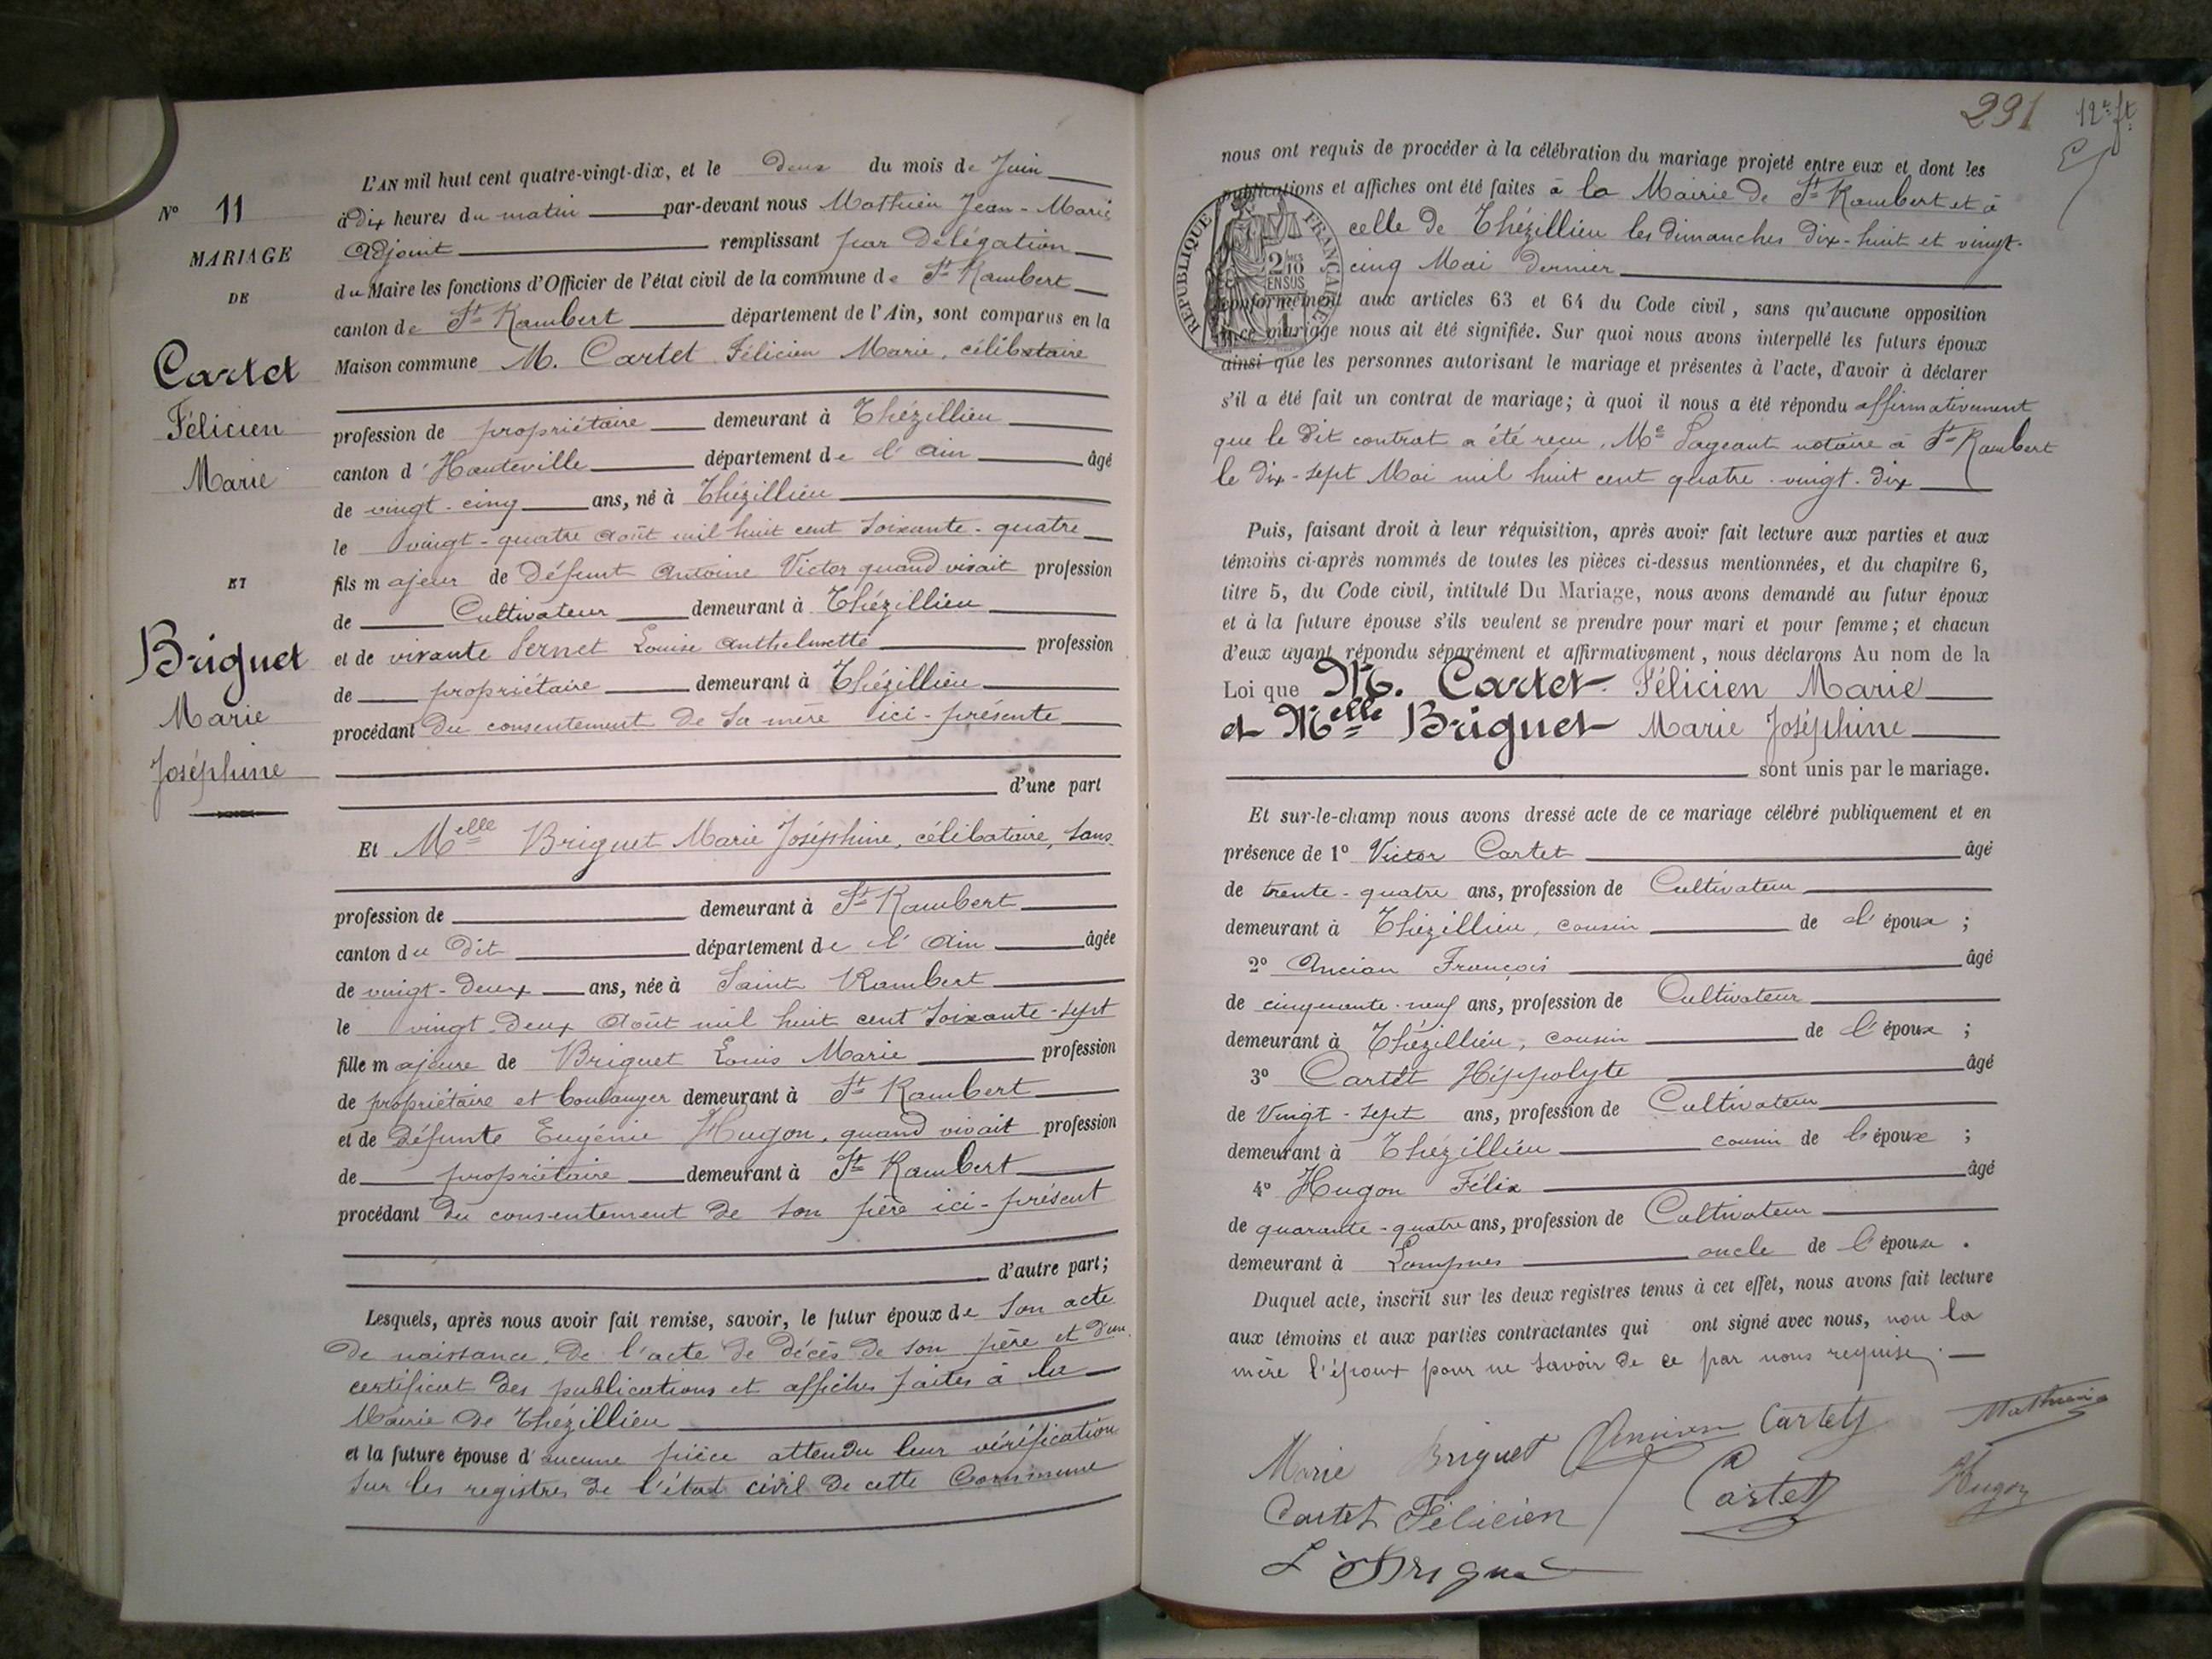 L'AN mil huit cent quatre-vingt-dix, et le deux du mois de Juin
N° 11
à dix heures du matin par-devant nous Mathieu Jean-Marie
MARIAGE
Adjoint remplissant par Délégation
DE
du Maire les fonctions d'Officier de l'état civil de la commune de St Rambert
canton de St Rambert département de l'Ain, sont comparus en la
Cartet
Maison commune M. Cartet Félicien Marie, célibataire
Félicien
profession de propriétaire demeurant à Thézillieu
Marie
canton d'Hauteville département de l'Ain âgé
de vingt-cinq ans, né à Thézillieu
le vingt-quatre Août mil huit cent soixante-quatre
ET
fils majeur de défunt Antoine Victor quand vivait profession
de Cultivateur demeurant à Thézillieu
Briguet
et de vivante Sernet Louise Anthelmette profession
de propriétaire demeurant à Thézillieu
Marie
procédant du consentement de sa mère ici-présente
Joséphine
d'une part
Et Melle Briguet Marie Joséphine, célibataire, sans
profession de demeurant à St Rambert
canton du dit département de l'Ain âgée
de vingt-deux ans, née à Saint Rambert
le vingt-deux Août mil huit cent soixante-sept
fille majeure de Briguet Louis Marie profession
de propriétaire et boulanger demeurant à St Rambert
et de défunte Eugénie Hugon, quand vivait profession
de propriétaire demeurant à St Rambert
procédant du consentement de son père ici-présent
d'autre part;
Lesquels, après nous avoir fait remise, savoir, le futur époux de son acte
de naissance, de l'acte de décès de son père et d'un
certificat des publications et affiches faites à la
Mairie de Thézillieu
et la future épouse d'aucune pièce attendu leur vérification
sur les registres de l'état civil de cette Commune
291
nous ont requis de procéder à la célébration du mariage projeté entre eux et dont les
publications et affiches ont été faites à la Mairie de St Rambert et à
celle de Thézillieu les dimanches dix-huit et vingt-
cinq Mai dernier
RÉPUBLIQUE FRANÇAISE
conformément aux articles 63 et 64 du Code civil, sans qu'aucune opposition
à ce mariage nous ait été signifiée. Sur quoi nous avons interpellé les futurs époux
ainsi que les personnes autorisant le mariage et présentes à l'acte, d'avoir à déclarer
s'il a été fait un contrat de mariage; à quoi il nous a été répondu affirmativement
que le dit contrat a été reçu, Me Pageaut notaire à St Rambert
le dix-sept Mai mil huit cent quatre-vingt-dix
Puis, faisant droit à leur réquisition, après avoir fait lecture aux parties et aux
témoins ci-après nommés de toutes les pièces ci-dessus mentionnées, et du chapitre 6,
titre 5, du Code civil, intitulé Du Mariage, nous avons demandé au futur époux
et à la future épouse s'ils veulent se prendre pour mari et pour femme; et chacun
d'eux ayant répondu séparément et affirmativement, nous déclarons Au nom de la
Loi que M. Cartet Félicien Marie
et Melle Briguet Marie Joséphine
sont unis par le mariage.
Et sur-le-champ nous avons dressé acte de ce mariage célébré publiquement et en
présence de 1° Victor Cartet âgé
de trente-quatre ans, profession de Cultivateur
demeurant à Thézillieu, cousin de l'époux;
2° Ancian François âgé
de cinquante-neuf ans, profession de Cultivateur
demeurant à Thézillieu, cousin de l'époux;
3° Cartet Hippolyte âgé
de Vingt-sept ans, profession de Cultivateur
demeurant à Thézillieu cousin de l'époux;
4° Hugon Félix âgé
de quarante-quatre ans, profession de Cultivateur
demeurant à Lompnes oncle de l'épouse.
Duquel acte, inscrit sur les deux registres tenus à cet effet, nous avons fait lecture
aux témoins et aux parties contractantes qui ont signé avec nous, non la
mère l'époux pour ne savoir de ce par nous requise.
Marie Briguet Cartet Mathieu
Cartet Félicien Cartet Hugon
L Brigue